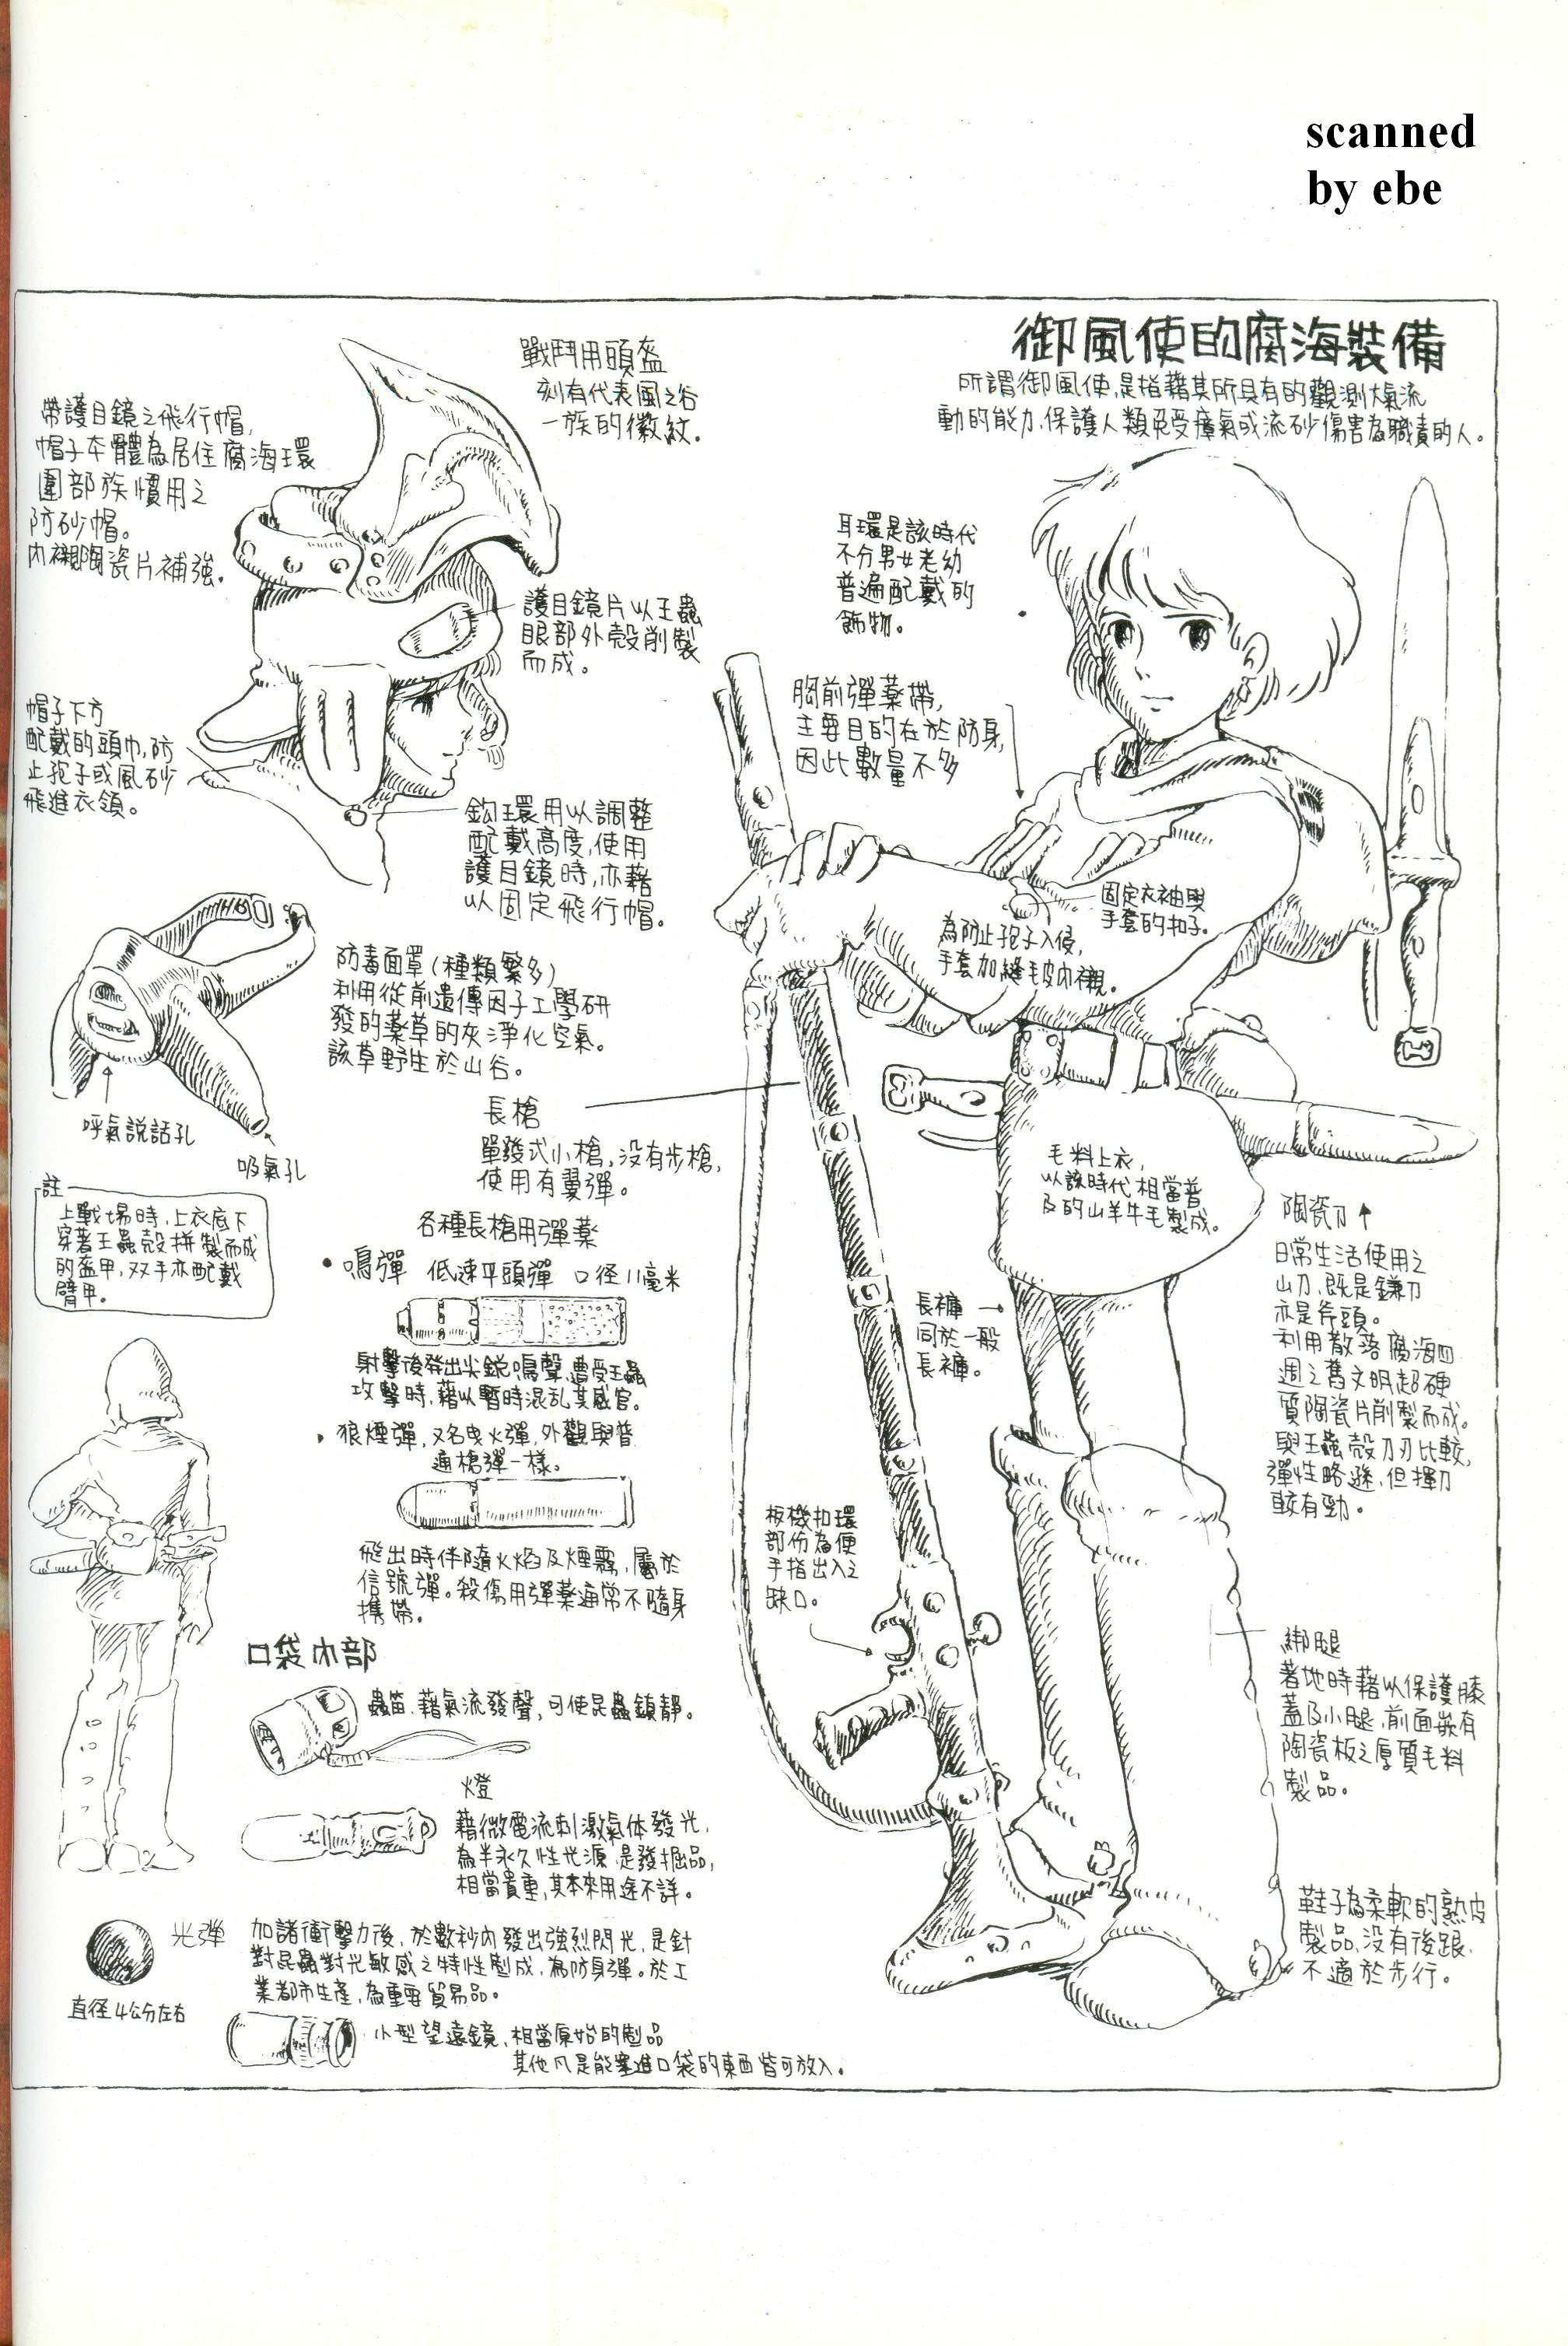 scanned
by ebe
御風使的腐海裝備
所謂御風使,是指藉其所具有的觀測大氣流
動的能力,保護人類免受瘴氣或流砂傷害為職責的人。
戰鬥用頭盔
刻有代表風之谷
一族的徽紋.
帶護目鏡之飛行帽,
帽子本體為居住腐海環
圍部族慣用之
防砂帽。
內襯陶瓷片補強.
護目鏡片以王蟲
眼部外殼削製
而成。
帽子下方
配戴的頭巾,防
止孢子或風砂
飛進衣領。
鈎環用以調整
配戴高度,使用
護目鏡時,亦藉
以固定飛行帽。
耳環是該時代
不分男女老幼
普遍配戴的
飾物。
胸前彈藥帶,
主要目的在於防身,
因此數量不多
固定衣袖與
手套的扣子。
為防止孢子入侵,
手套加縫毛皮內襯.
防毒面罩(種類繁多)
利用從前遺傳因子工學研
發的藥草的灰淨化空氣。
該草野生於山谷。
呼氣說話孔
吸氣孔
長槍
單發式小槍,沒有步槍,
使用有翼彈。
註
上戰場時,上衣底下
穿著王蟲殼拼製而成
的盔甲,双手亦配戴
臂甲。
各種長槍用彈藥
• 鳴彈 低速平頭彈 口径11毫米
射擊後発出尖銳鳴聲,遭受王蟲
攻擊時,藉以暫時混乱其感官。
狼煙彈,又名曳火彈,外觀與普
通槍彈一樣。
飛出時伴隨火焰及煙霧,屬於
信號彈。殺傷用彈藥通常不隨身
攜帶。
毛料上衣,
以該時代相當普
及的山羊牛毛製成.
長褲 →
同於一般
長褲。
陶瓷刀 ↑
日常生活使用之
山刀,既是鐮刀
亦是斧頭。
利用散落腐海四
週之舊文明超硬
質陶瓷片削製而成。
與王蟲殼刀刃比較,
彈性略遜,但揮刀
較有勁。
板機扣環
部份為便
手指出入之
缺口。
綁腿
著地時藉以保護膝
蓋及小腿,前面嵌有
陶瓷板之厚質毛料
製品。
鞋子為柔軟的熟皮
製品,沒有後跟,
不適於步行。
口袋內部
蟲笛.藉氣流發聲,可使昆蟲鎮靜。
燈
藉微電流刺激氣体發光,
為半永久性光源.是發掘品,
相當貴重,其本來用途不詳。
光弾
加諸衝擊力後,於數秒內發出強烈閃光.是針
對昆蟲對光敏感之特性製成,為防身彈。於工
業都市生產,為重要貿易品。
直径4公分左右
小型望遠鏡,相當原始的製品
其他凡是能塞進口袋的東西皆可放入.